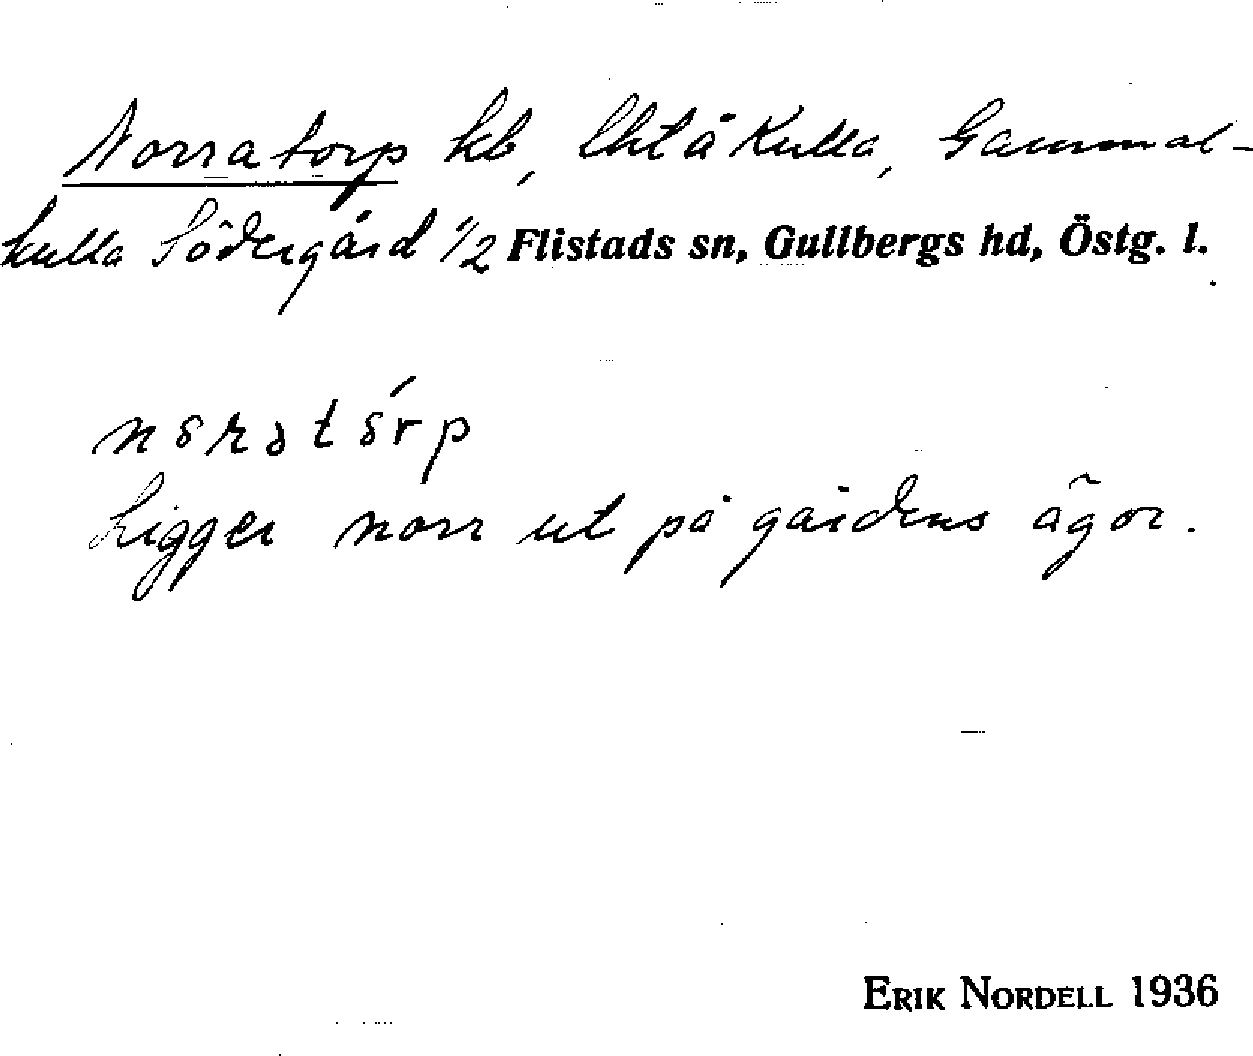 Norratorp hb, Cht å Kulla, Gammal-
kulla Södergård 1/2 Flistads sn, Gullbergs hd, Östg. l.
Ligger norr ut på gårdens ägor.
ERIK NORDELL 1936